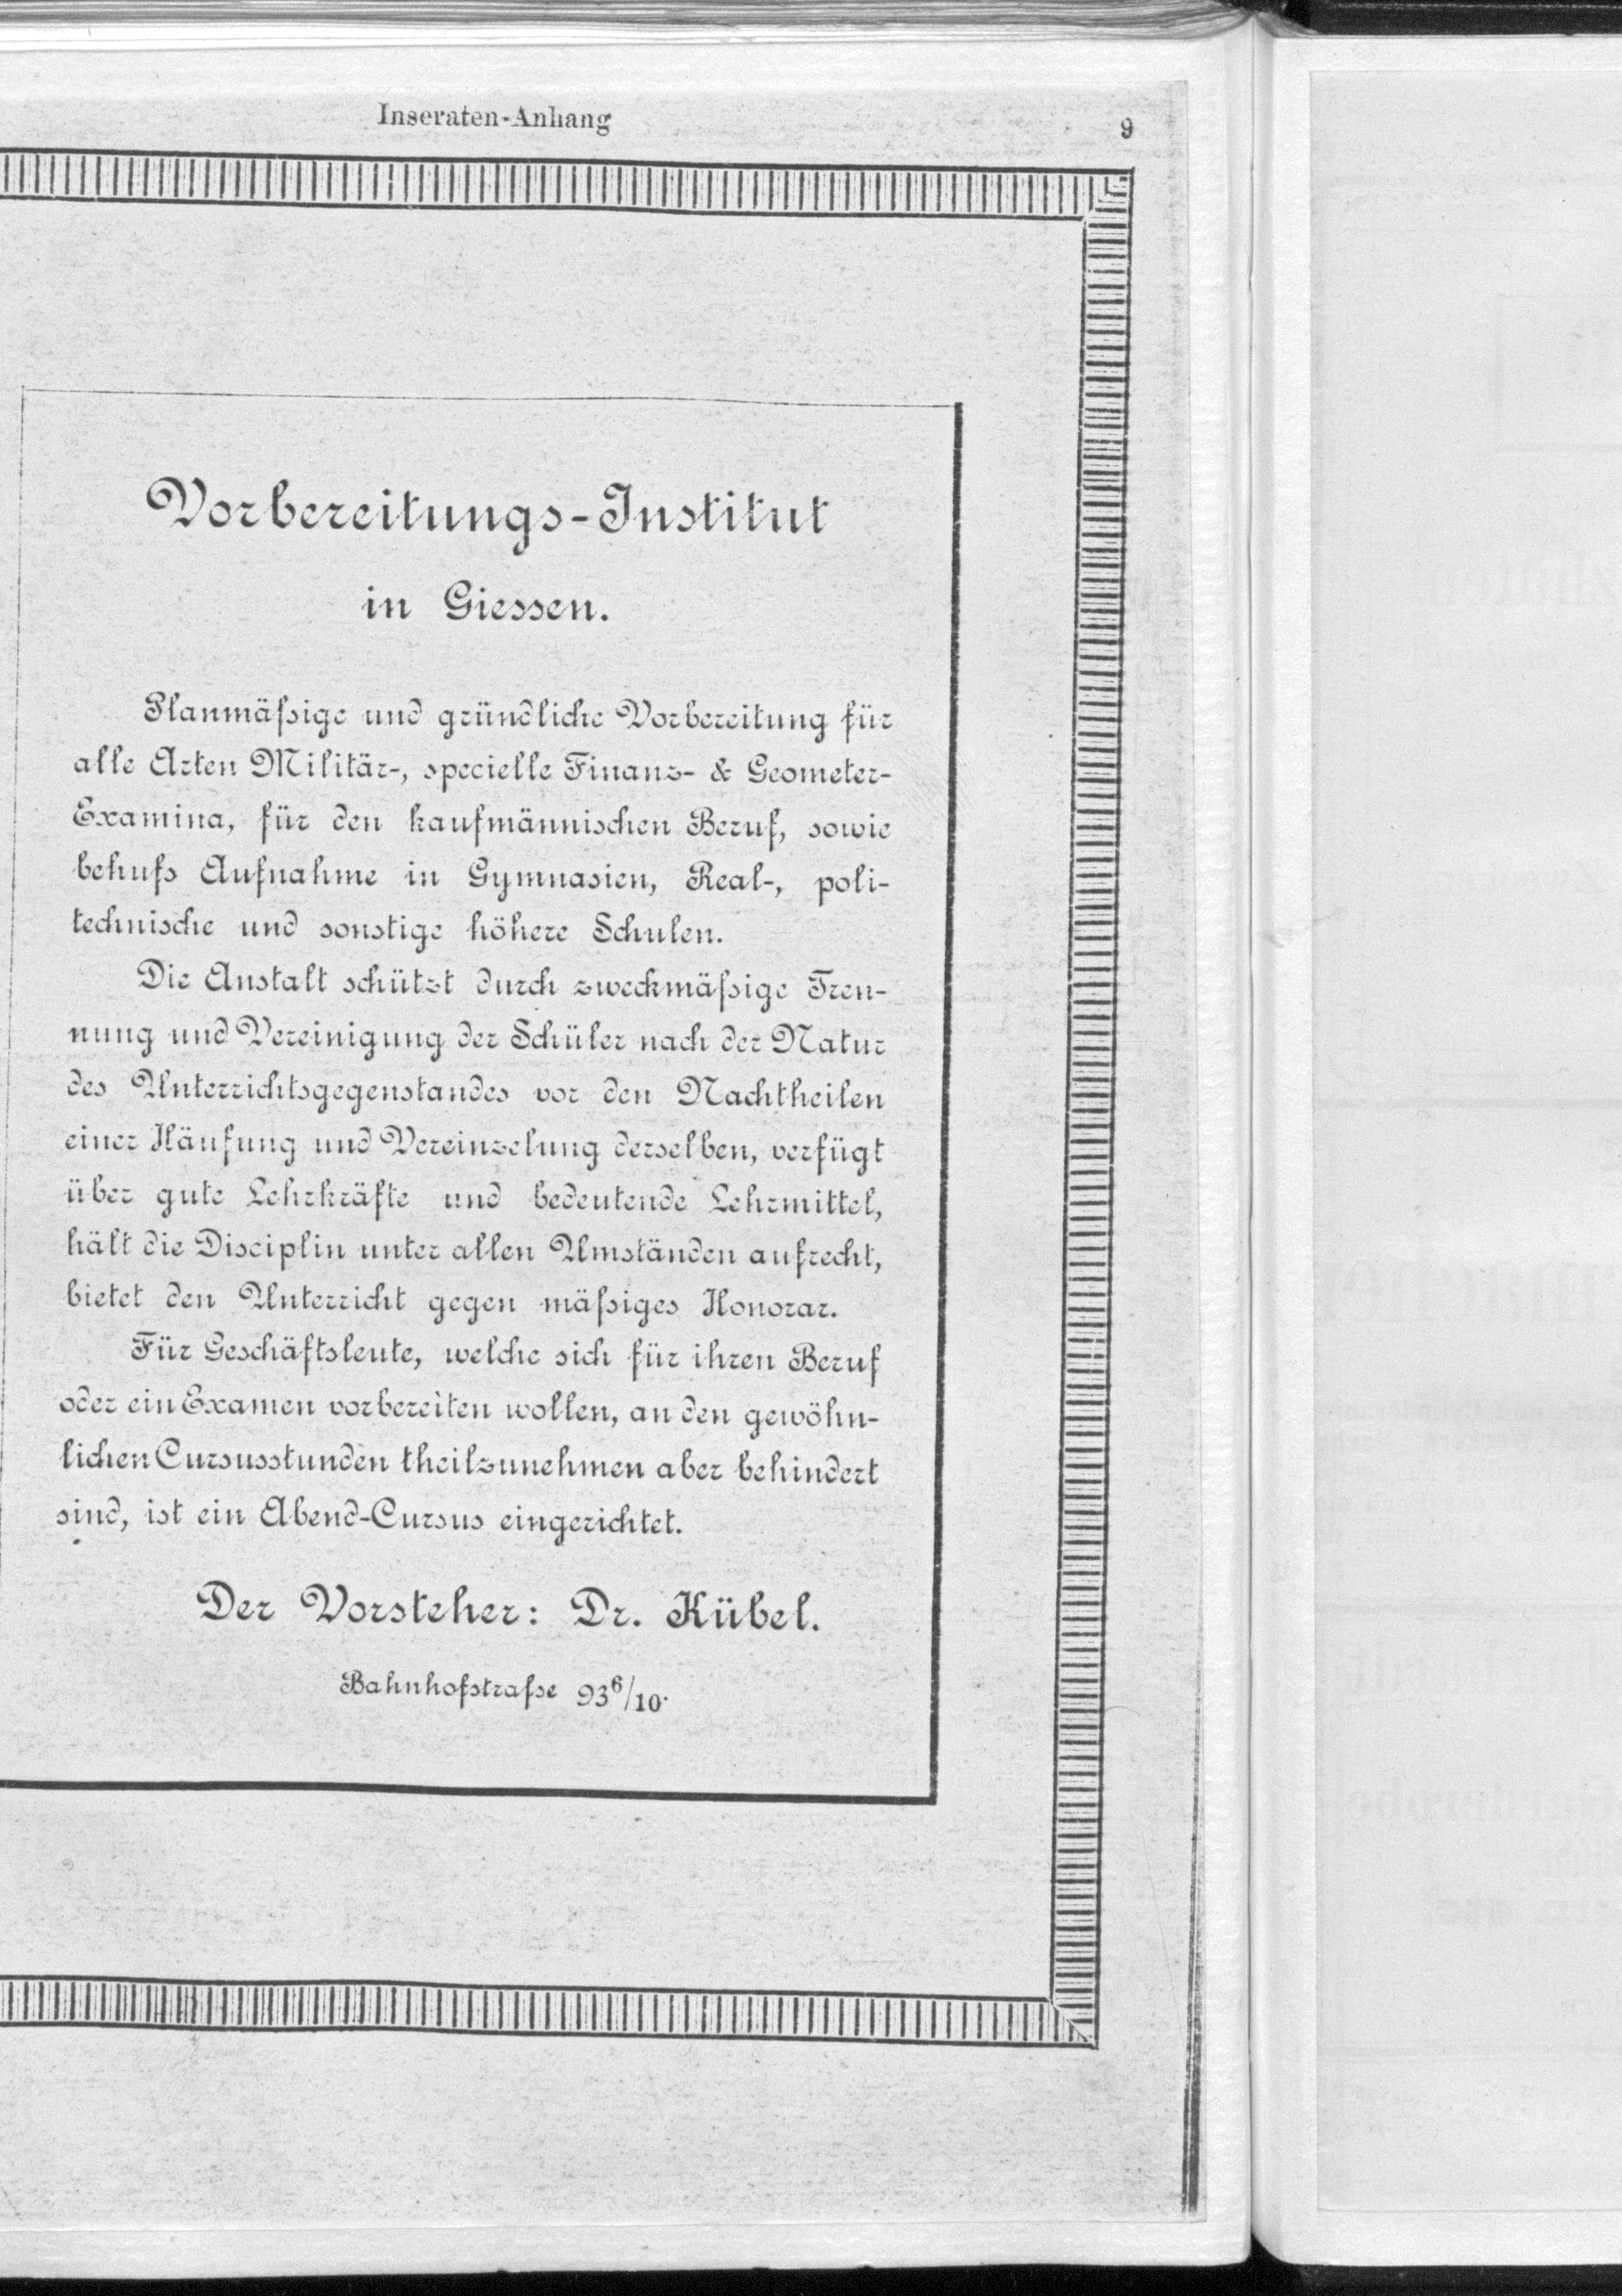 Inseraten-Anhang
9
Vorbereitungs-Institut
in Giessen.
Planmäßige und gründliche Vorbereitung für
alle Arten Militär-, specielle Finanz- & Geometer-
Examina, für den kaufmännischen Beruf, sowie
behufs Aufnahme in Gymnasien, Real-, poli-
technische und sonstige höhere Schulen.
Die Anstalt schützt durch zweckmäßige Tren-
nung und Vereinigung der Schüler nach der Natur
des Unterrichtsgegenstandes vor den Nachtheilen
einer Häufung und Vereinzelung derselben, verfügt
über gute Lehrkräfte und bedeutende Lehrmittel,
hält die Disciplin unter allen Umständen aufrecht,
bietet den Unterricht gegen mäßiges Honorar.
Für Geschäftsleute, welche sich für ihren Beruf
oder ein Examen vorbereiten wollen, an den gewöhn-
lichen Cursusstunden theilzunehmen aber behindert
sind, ist ein Abend-Cursus eingerichtet.
Der Vorsteher: Dr. Kübel.
Bahnhofstraße 93⁶/10.